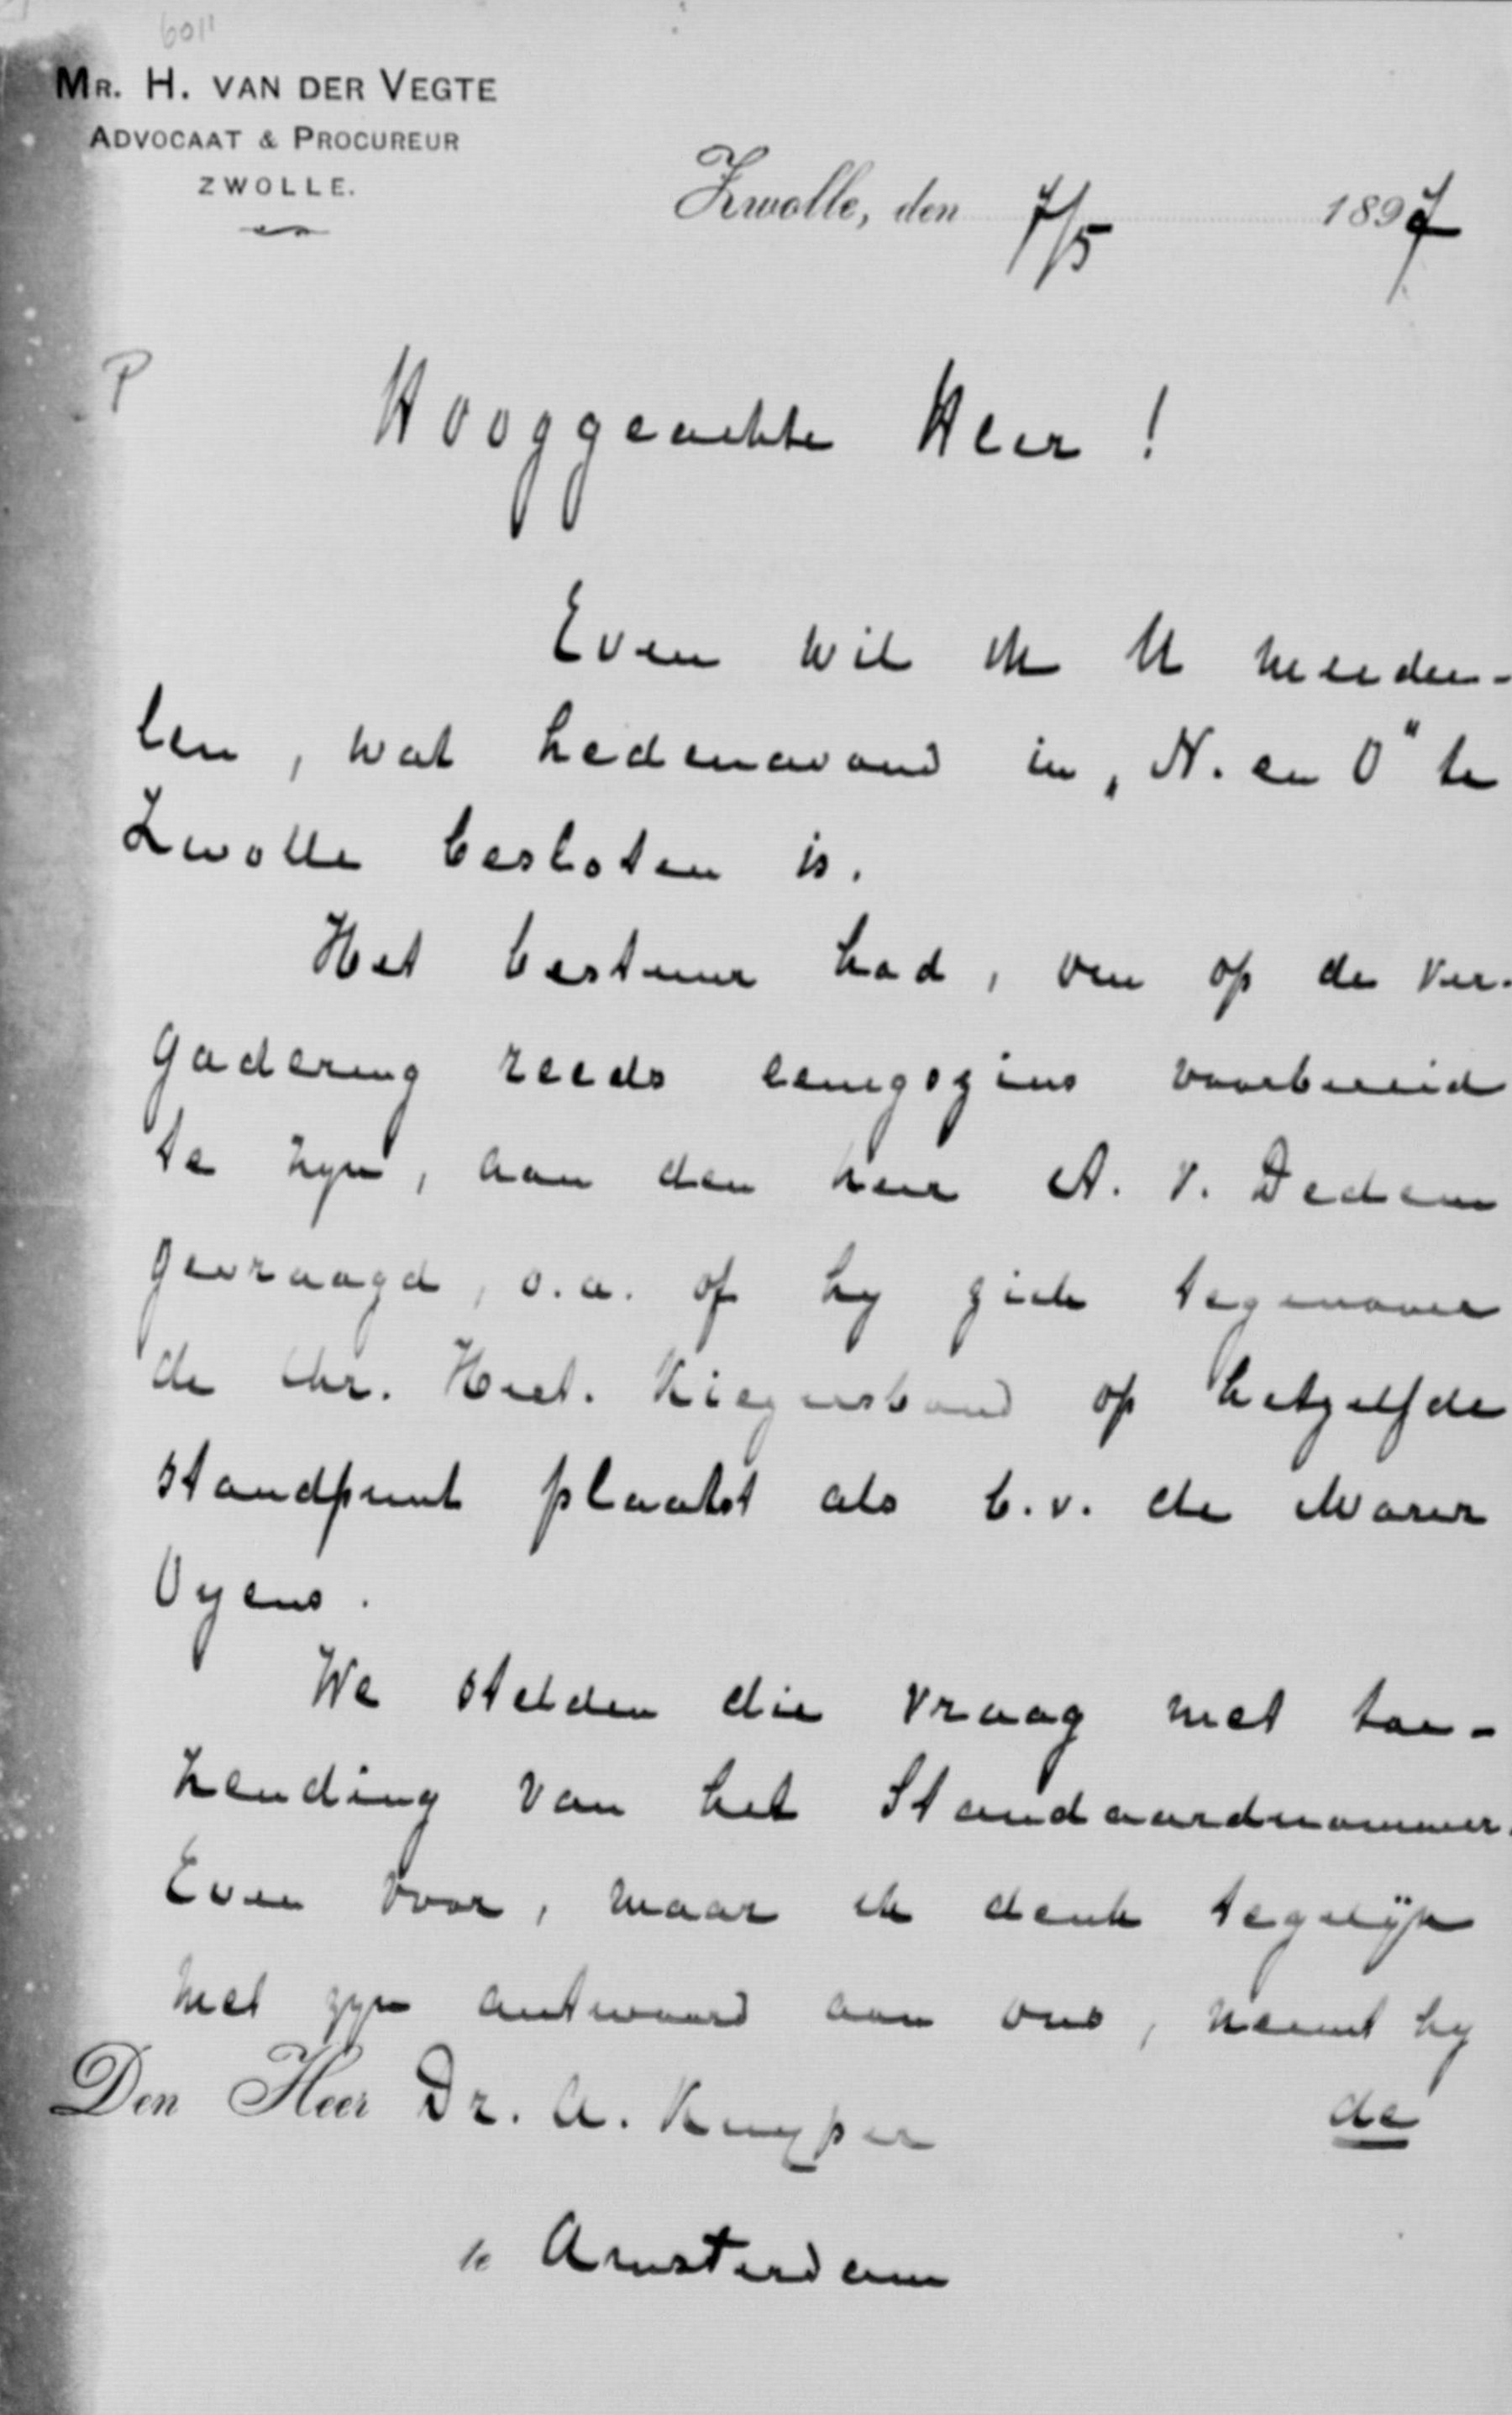 6011
MR. H. VAN DER VEGTE
ADVOCAAT & PROCUREUR
ZWOLLE.
Zwolle, den 7/5 1897
P
Hooggeachte Heer!
Even wil ik U meedee-
len, wat hedenavond in „N. en O" te
Zwolle besloten is.
Het bestuur had, om op de ver-
gadering reeds eenigszins voorbereid
te zyn, aan den heer A. v. Dedem
gevraagd, o.a. of hy zich tegenover
de Chr. Hist. Kiezersbond op hetzelfde
standpunt plaatst als b.v. de Marez
Oyens.
We stelden die vraag met toe-
zending van het Standaardnommer.
Even voor, maar ik denk tegelijk
met zyn antwoord aan ons, neemt hy
de
Den Heer Dr. A. Kuyper
te Amsterdam